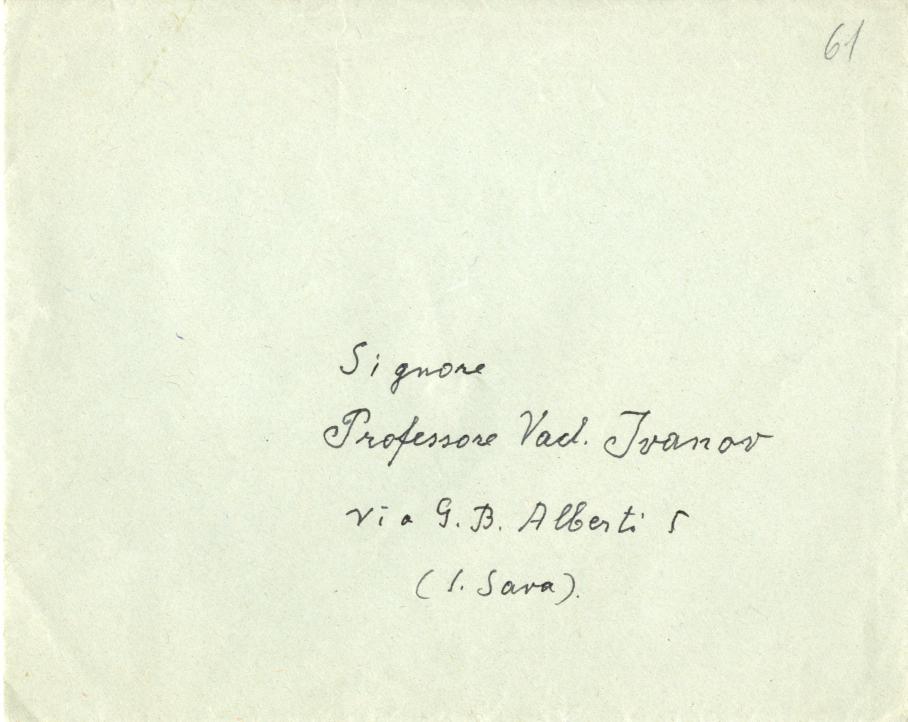 61
Signore
Professore Vacl. Ivanov
via G. B. Alberti 5
(S. Sava).